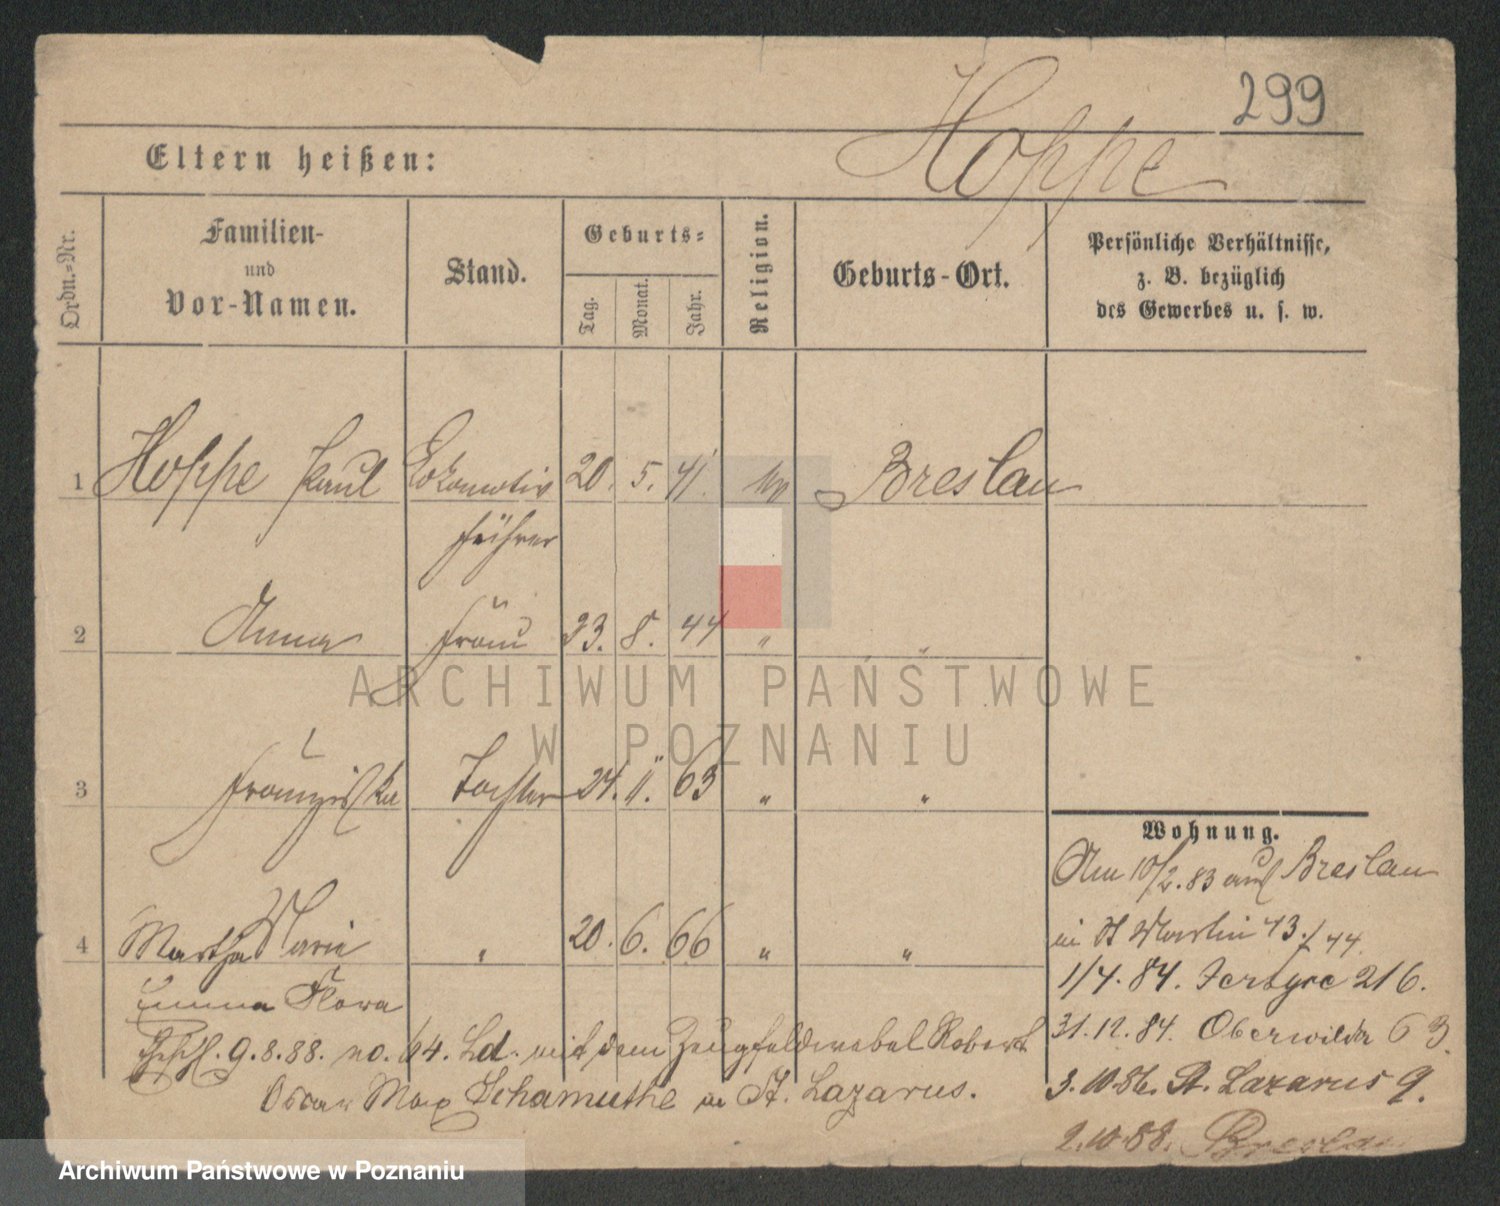 299
Hoppe
Eltern heißen:
Ordn.-Nr.
Familien-
und
Vor-Namen.
Stand.
Geburts-
Tag.
Monat.
Jahr.
Religion.
Geburts-Ort.
Persönliche Verhältnisse,
z. B. bezüglich
des Gewerbes u. s. w.
1 Hoppe Paul Lokomotiv 20. 5. 41. Breslau
führer
2 Anna Frau 23. 8. 44 " "
ARCHIWUM PAŃSTWOWE
W POZNANIU
3 Franziska Tochter 24. 11. 63 " "
Wohnung.
Am 10/2. 83 aus Breslau
4 Martha Marie " 20. 6. 66 " "
in St Martin 43./44.
Emma Flora
1/4. 84. Jersyce 216.
Gesch. 9.8.88. no. 64. Ld. mit dem Zeugfeldwebel Robert
31.12.84. Oberwilda 63.
Oscar Max Schamuthe in St. Lazarus.
3.10.86. St. Lazarus 9.
2.10.88. Breslau
Archiwum Państwowe w Poznaniu